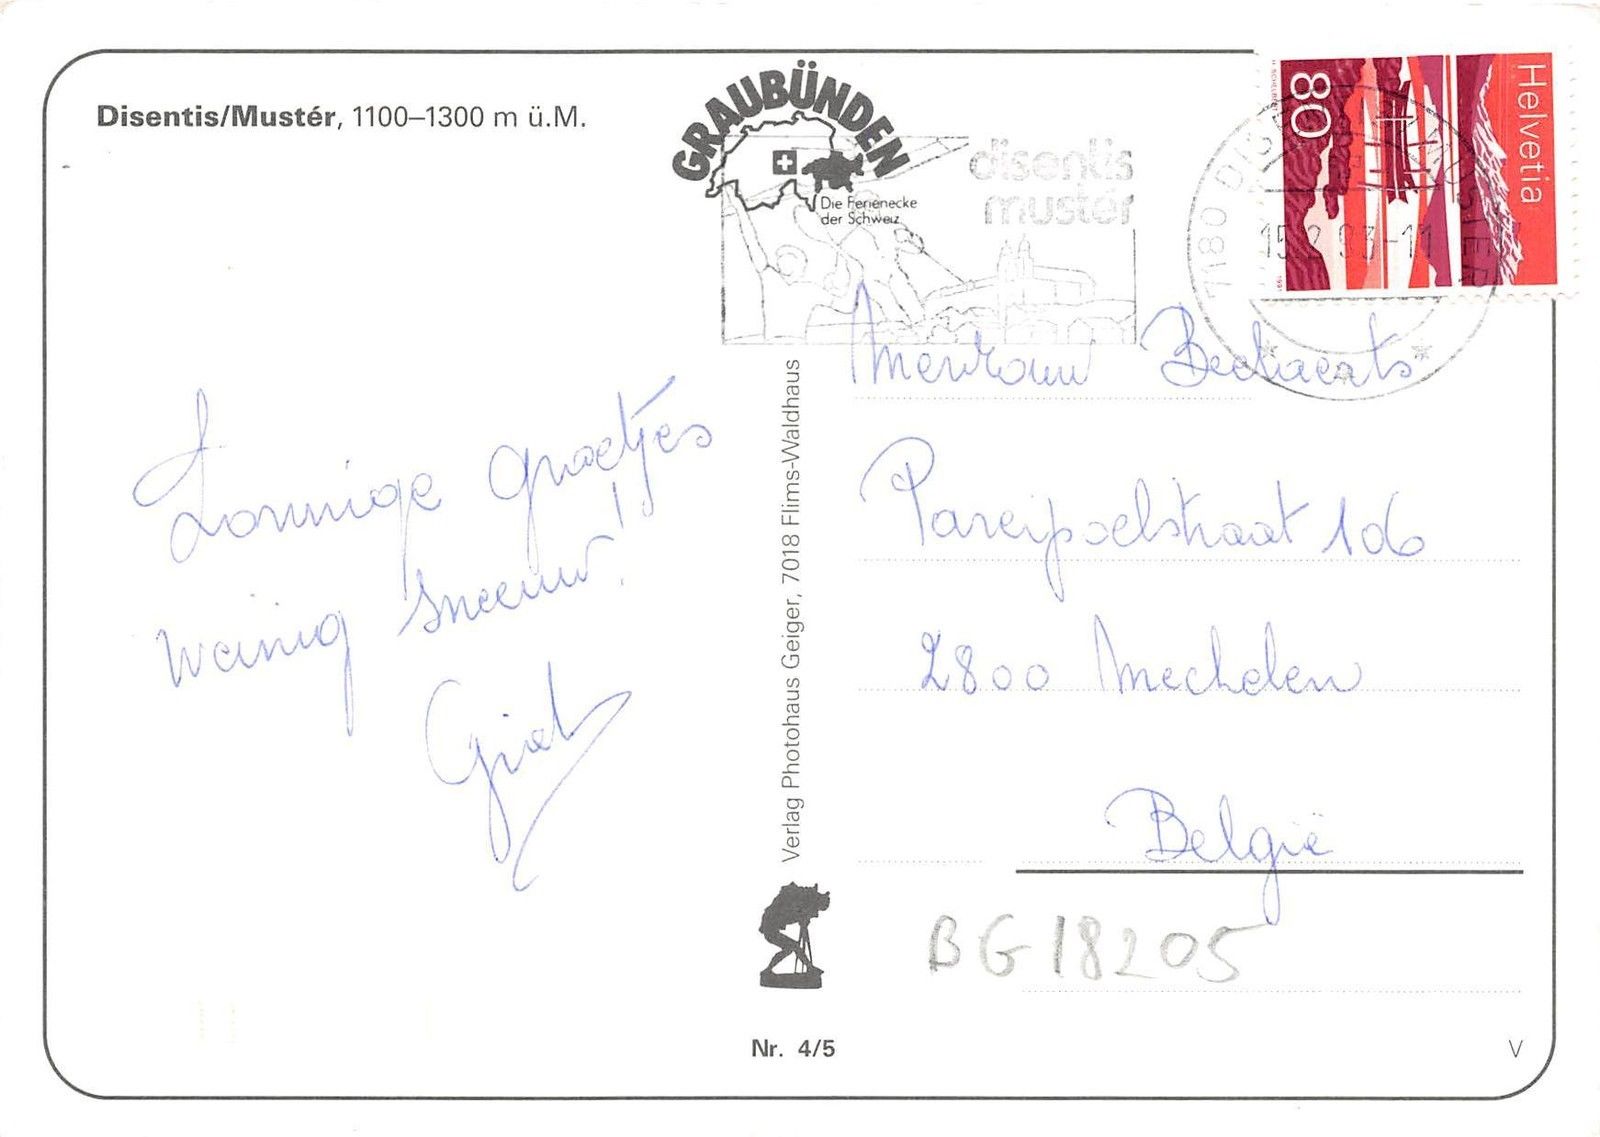 Disentis/Mustér, 1100–1300 m ü.M.
GRAUBÜNDEN
Die Ferienecke
der Schweiz
disentis
mustér
Helvetia
80
1991
7180 DISENTIS/MUSTER
15.2.93-11
Zonnige groetjes
weinig sneeuw!
Griet
Mevrouw Beckaerts
Pareipoelstraat 106
2800 Mechelen
België
BG18205
Verlag Photohaus Geiger, 7018 Flims-Waldhaus
Nr. 4/5
V